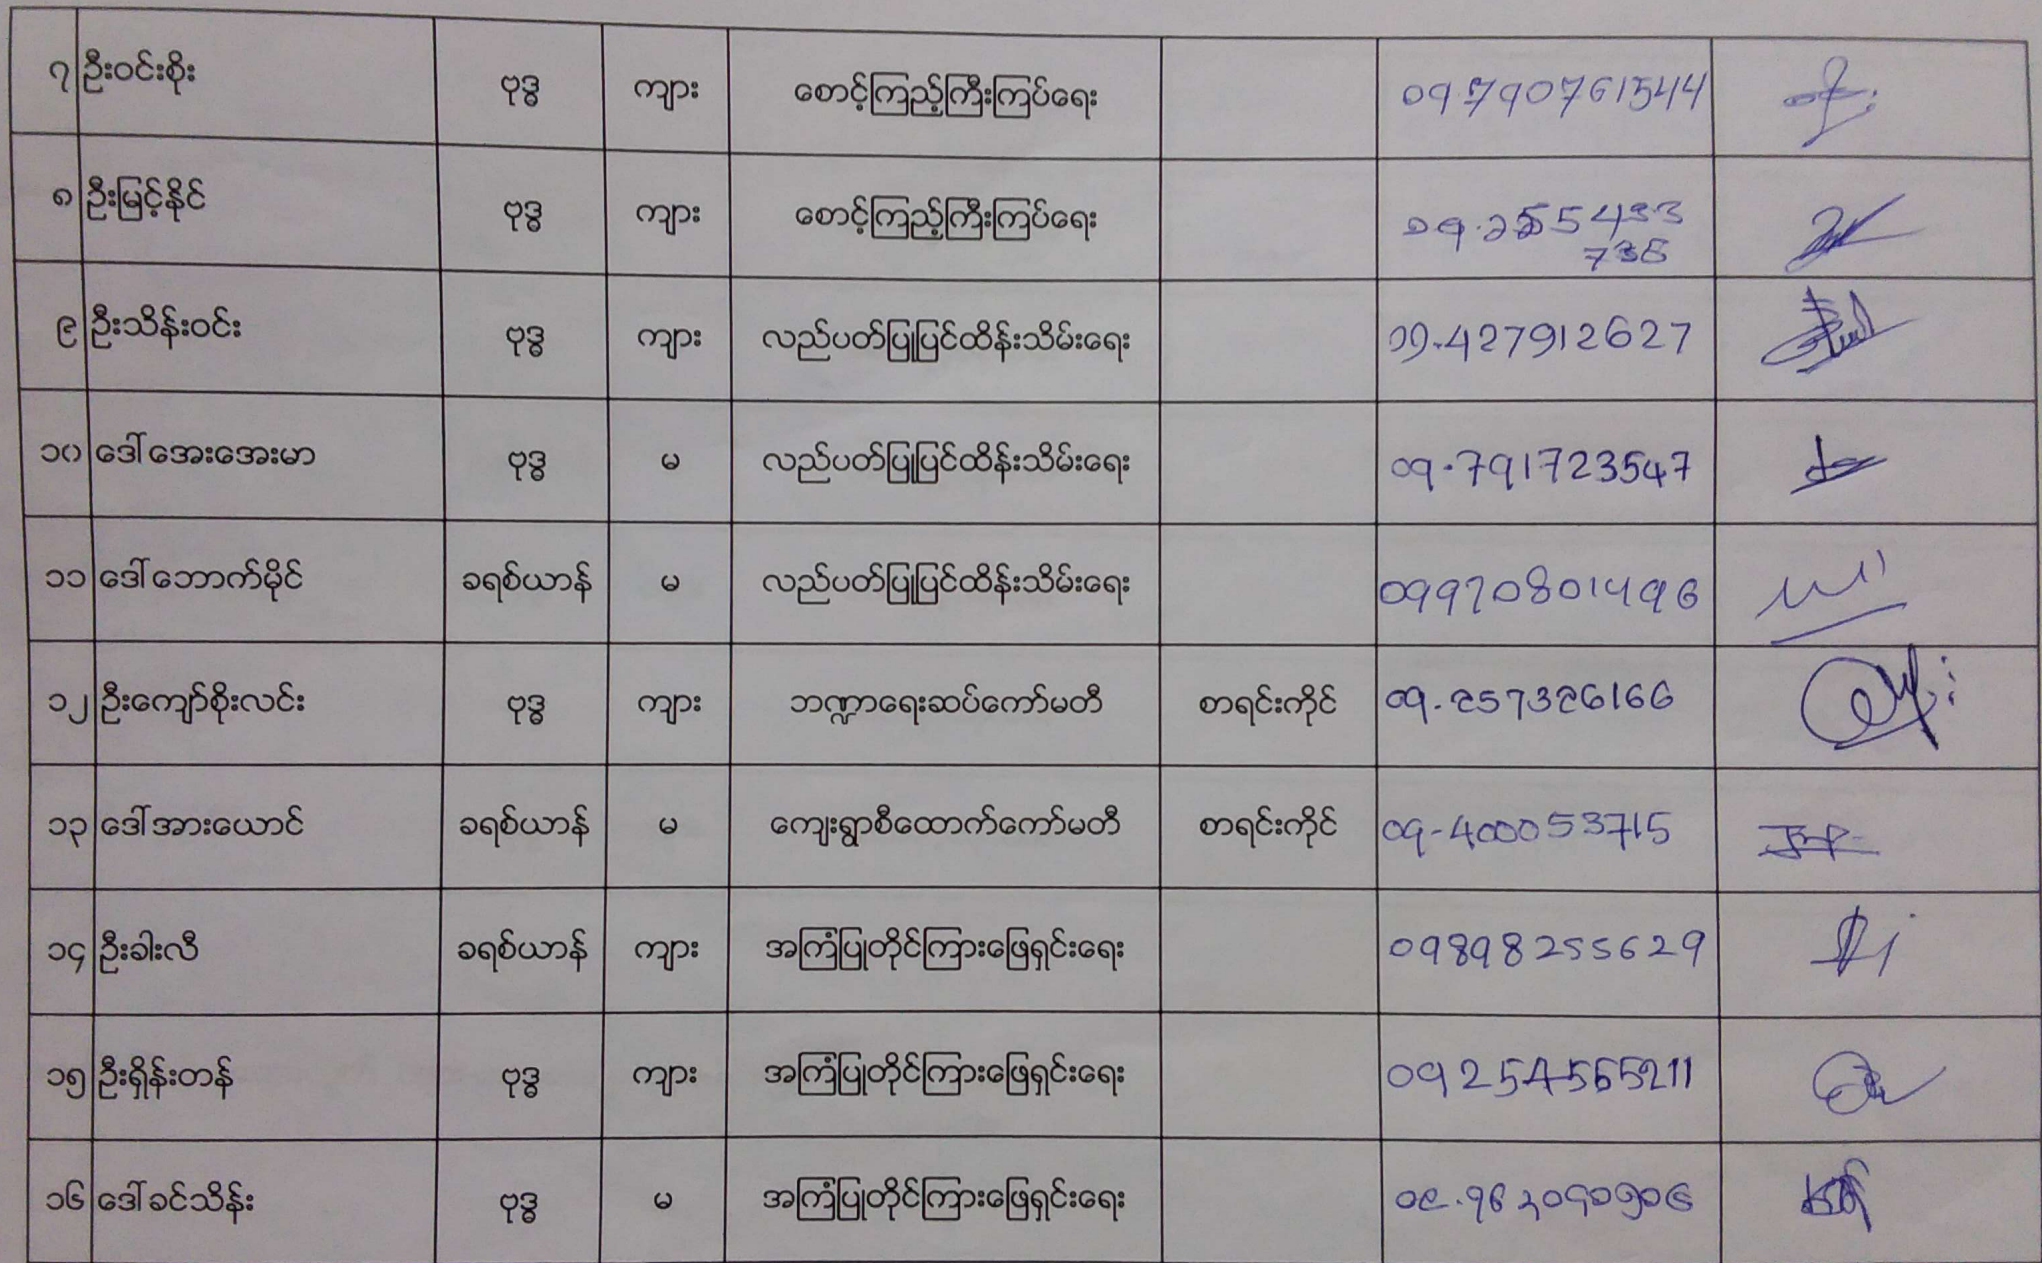 ၇ ဦးဝင်းစိုး ဗုဒ္ဓ ကျား စောင့်ကြည့်ကြီးကြပ်ရေး 09790761544
၈ ဦးမြင့်နိုင် ဗုဒ္ဓ ကျား စောင့်ကြည့်ကြီးကြပ်ရေး
၉ ဦးသိန်းဝင်း ဗုဒ္ဓ ကျား လည်ပတ်ပြုပြင်ထိန်းသိမ်းရေး 09.427912627
၁၀ ဒေါ်အေးအေးမာ ဗုဒ္ဓ မ လည်ပတ်ပြုပြင်ထိန်းသိမ်းရေး 09.791723547
၁၁ ဒေါ်ဘောက်မိုင် ခရစ်ယာန် မ လည်ပတ်ပြုပြင်ထိန်းသိမ်းရေး 09970801496
၁၂ ဦးကျော်စိုးလင်း ဗုဒ္ဓ ကျား ဘဏ္ဍာရေးဆပ်ကော်မတီ စာရင်းကိုင်
၁၃ ဒေါ်အားယောင် ခရစ်ယာန် မ ကျေးရွာစီထောက်ကော်မတီ စာရင်းကိုင် 09-400053715
၁၄ ဦးခါးလီ ခရစ်ယာန် ကျား အကြံပြုတိုင်ကြားဖြေရှင်းရေး 09898255629
၁၅ ဦးရှိန်းတန် ဗုဒ္ဓ ကျား အကြံပြုတိုင်ကြားဖြေရှင်းရေး 09254565211
၁၆ ဒေါ်ခင်သိန်း ဗုဒ္ဓ မ အကြံပြုတိုင်ကြားဖြေရှင်းရေး